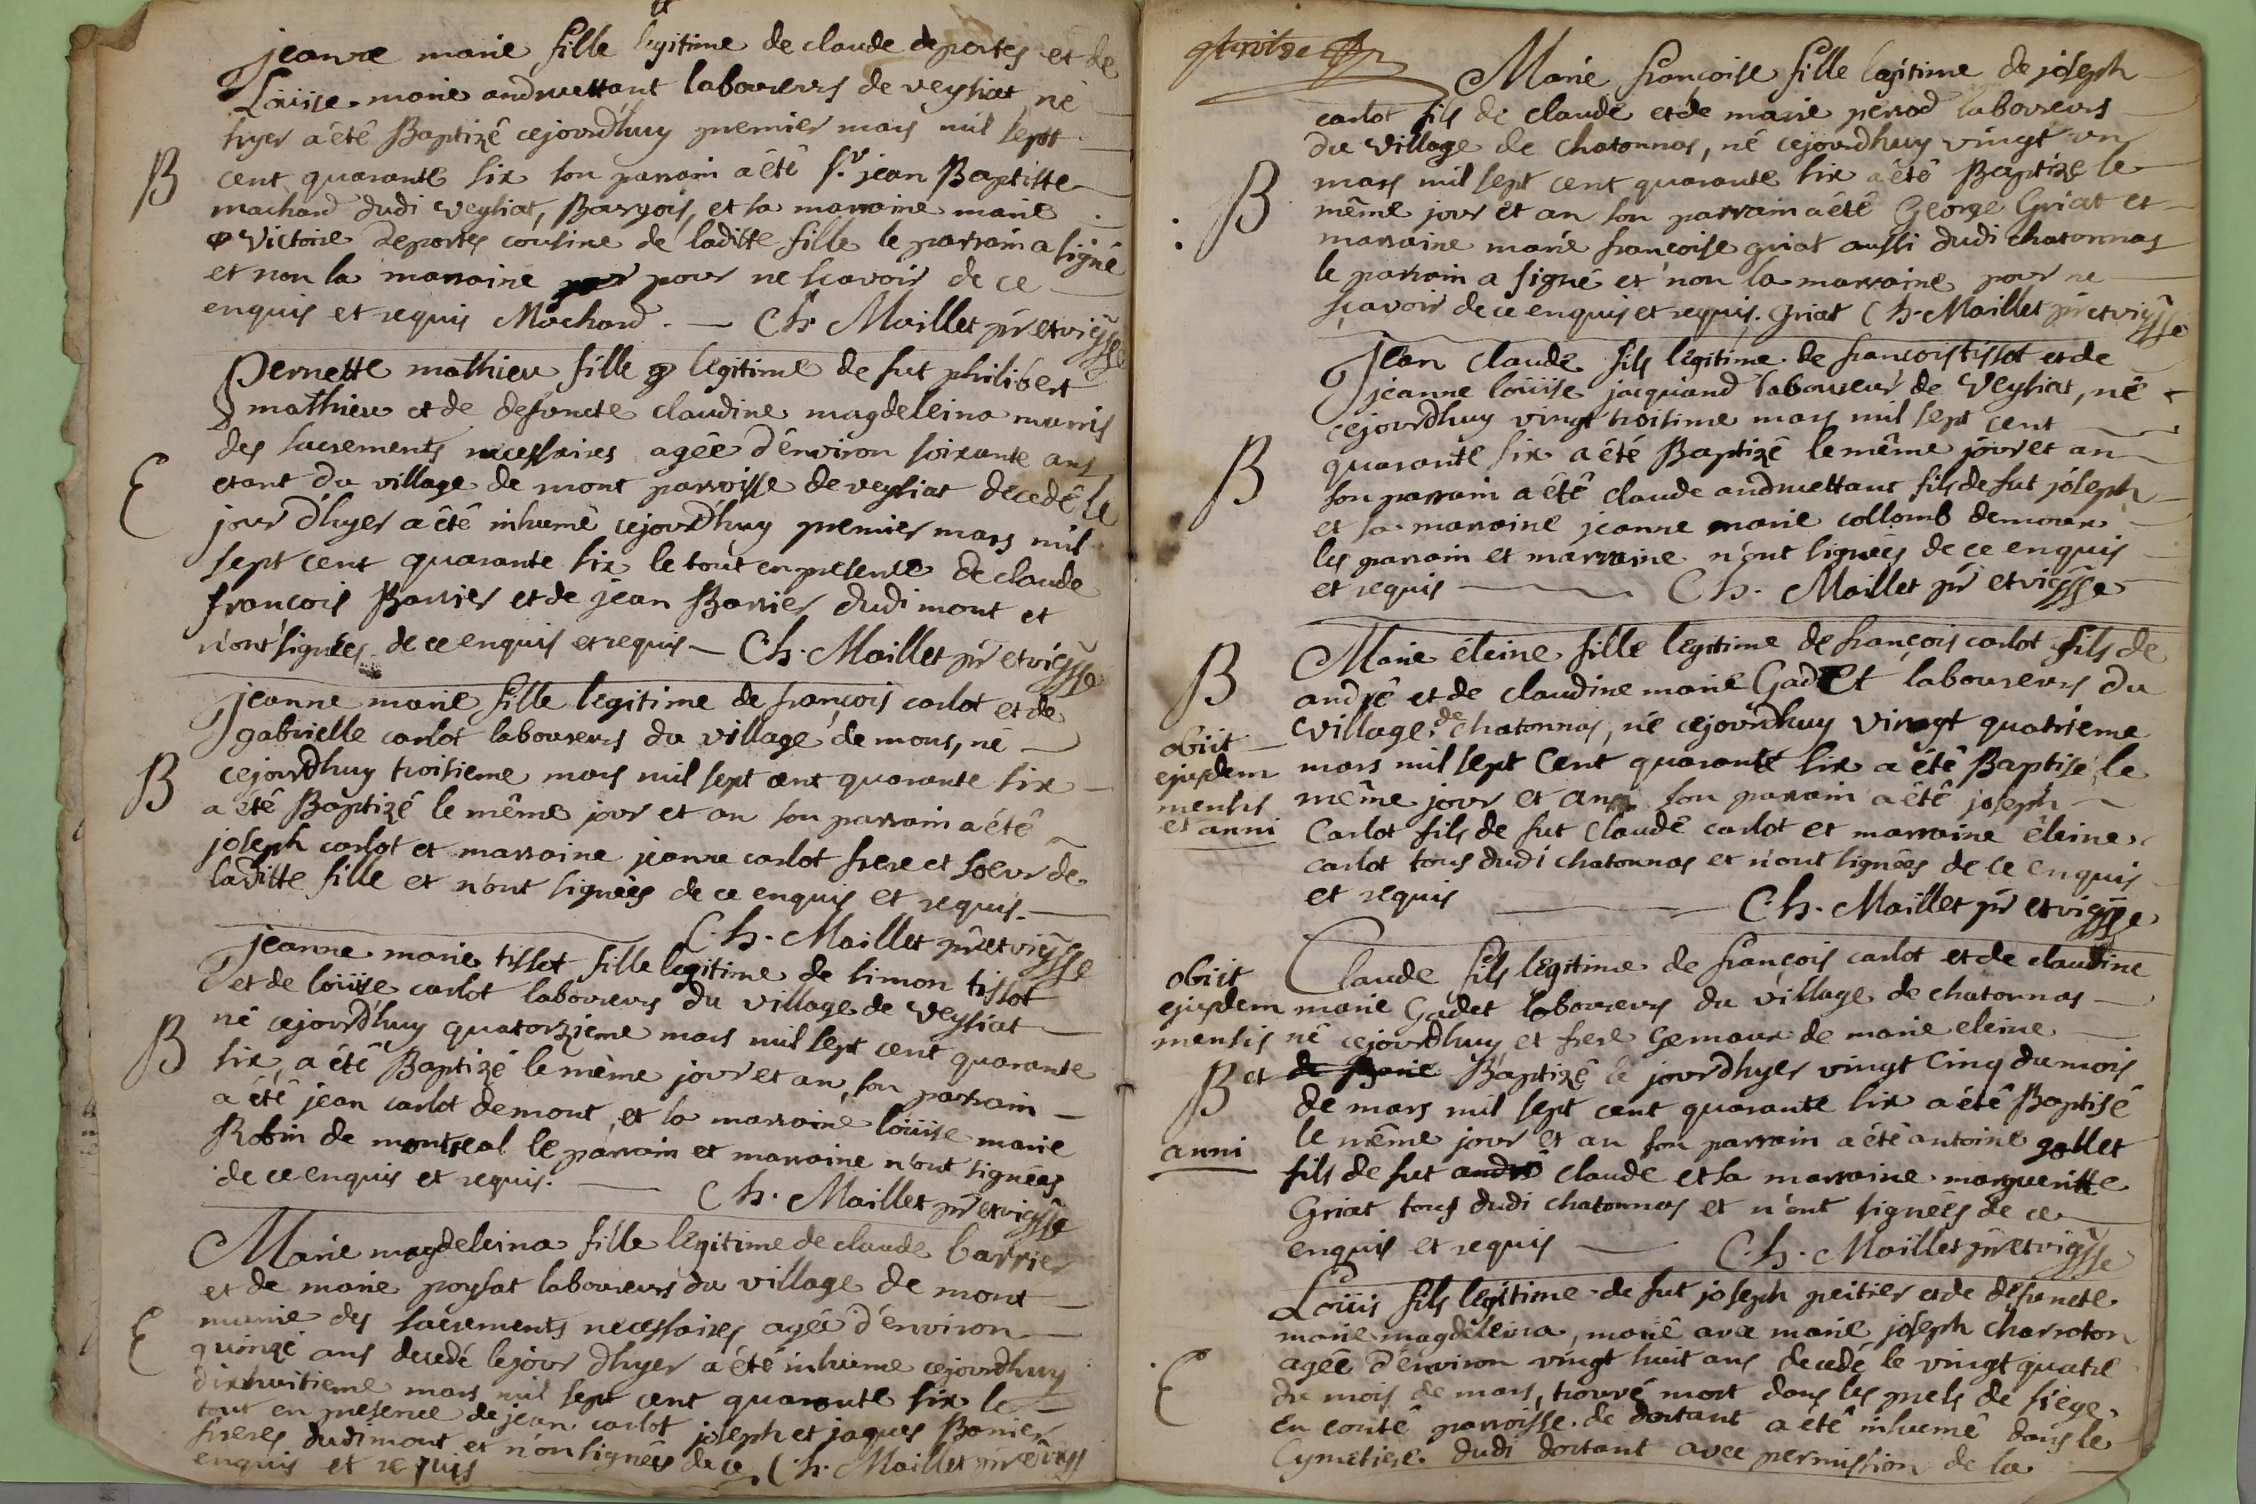 jeanne marie fille legitime de claude deportes et de
Loüise marie andruettant laboureurs de veyziat, né
hyer a été Baptizé cejourdhuy premier mars mil sept
B
cent quarante six son parrain a été sr. jean Baptiste
machard dudi veyziat, Bourgois, et sa marraine marie
victoire deportes cousine de laditte fille le parrain a signé
et non la marraine pour ne sçavoir de ce
enquis et requis Machard. — Ch. Maillet
Pernette mathieu fille legitime de fut philibert
mathieu et de defuncte claudine magdeleina munis
des sacrements necessaires agée d'environ soixante ans
E
etant du village de mont parroisse de veyziat decedé le
jour d'hyer a été inhumé cejourdhuy premier mars mil
sept cent quarante six le tout en presence de claude
françois Barrier et de jean Barrier dudi mont et
n'ont signées de ce enquis et requis — Ch. Maillet
jeanne marie fille legitime de françois carlot et de
gabrielle carlot laboureurs du village de mons, né
B
cejourdhuy troisieme mars mil sept cent quarante six
a été Baptizé le même jour et an son parrain a été
joseph carlot et marraine jeanne carlot frere et soeur de
laditte fille et n'ont signées de ce enquis et requis.
Ch. Maillet
jeanne marie tissot fille legitime de simon tissot
et de loüise carlot laboureurs du village de veyziat
né cejourdhuy quatorzieme mars mil sept cent quarante
B
six, a été Baptizé le même jour et an, son parrain
a été jean carlot de mont, et la marraine loüise marie
Robin de montreal le parrain et marraine n'ont signées
de ce enquis et requis. — Ch. Maillet
Marie magdeleina fille legitime de claude barrier
et de marie poysat laboureurs du village de mont
E
munie des sacrements necessaires agée d'environ
quinze ans decedé le jour d'hyer a été inhumé cejourdhuy
dixhuitieme mars mil sept cent quarante six le
tout en presence de jean carlot joseph et jaques Barrier
freres dudi mont et n'on signées de ce
enquis et requis Ch. Maillet
Marie françoise fille legitime de joseph
carlot fils de claude et de marie perrod laboureurs
du village de chatonnas, né cejourdhuy vingt un
B
mars mil sept cent quarante six a été Baptizé le
même jour et an son parrain a été George Griat et
marraine marie françoise griat aussi dudi chatonnas
le parrain a signé et non la marraine pour ne
sçavoir de ce enquis et requis. Griat Ch. Maillet
Jean claude fils legitime de françois tissot et de
jeanne loüise jacquiand laboureurs de veyziat, né
cejourdhuy vingt troisime mars mil sept cent
B
quarante six a été Baptizé le même jour et an
son parrain a été claude andruettant fils de fut joseph
et sa marraine jeanne marie collomb
les parrain et marraine n'ont signées de ce enquis
et requis — Ch. Maillet
B
Marie éleine fille legitime de françois carlot fils de
andré et de claudine marie Gadet laboureurs du
village de chatonnas, né cejourdhuy vingt quatrieme
obiit ejusdem mensis et anni
mars mil sept cent quarante six a été Baptisé le
même jour et an son parrain a été joseph
Carlot fils de fut claude carlot et marraine éleine
carlot tous dudi chatonnas et n'ont signées de ce enquis
et requis — Ch. Maillet
Claude fils legitime de françois carlot et de claudine
obiit ejusdem mensis et anni
marie Gadet laboureurs du village de chatonnas
né cejourdhuy et frere gemaux de marie eleine
B
Baptizé le jourdhyer vingt cinq du mois
de mars mil sept cent quarante six a été Baptisé
le même jour et an son parrain a été antoine gallet
fils de fut claude et la marraine margueritte
Griat tous dudi chatonnas et n'ont signées de ce
enquis et requis — Ch. Maillet
Loüis fils legitime de fut joseph peitier et de defuncte
marie magdeleina, marié avec marie joseph charroton
agée d'environ vingt huit ans decedé le vingt quatre
E
du mois de mars, trouvé mort dans les prels de siege
en comté parroisse de dortant a été inhumé dans le
Cymetiere dudi dortant avec permission de la